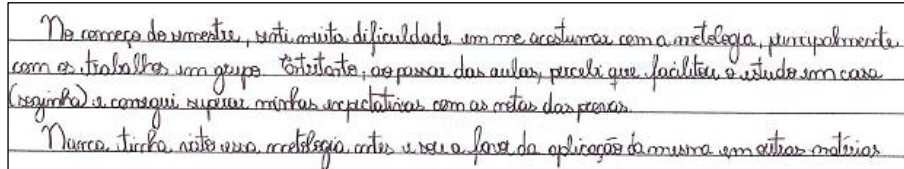 No começo do semestre, senti muita dificuldade em me acostumar com a metologia, principalmente
com os trabalhos em grupo. Entretanto, ao passar das aulas, percebi que facilitou o estudo em casa
(sozinha) e consegui superar minhas expectativas com as notas das provas.
Nunca tinha visto essa metologia antes e sou a favor da aplicação da mesma em outras matérias